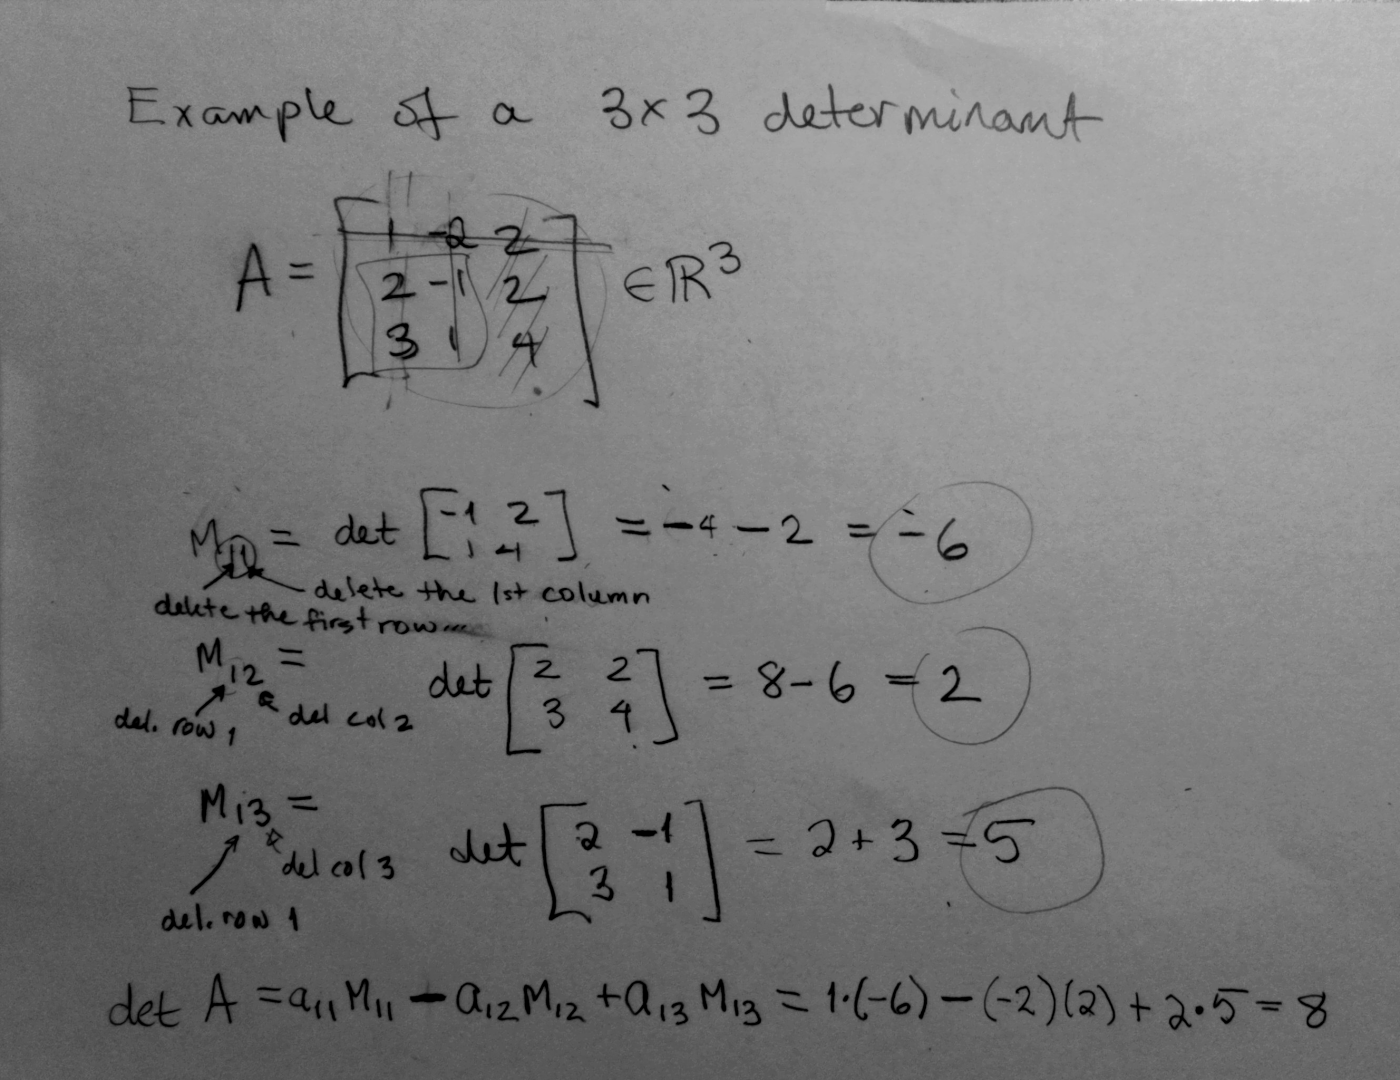 Example of a 3×3 determinant
A = [1 -2 2
2 -1 2
3 1 4] ∈ ℝ³
M₁₁ = det [-1 2
1 4] = -4 - 2 = -6
delete the 1st column
delete the first row...
M₁₂ = det [2 2
3 4] = 8 - 6 = 2
del. row 1 del col 2
M₁₃ = det [2 -1
3 1] = 2 + 3 = 5
del col 3
del. row 1
det A = a₁₁M₁₁ - a₁₂M₁₂ + a₁₃M₁₃ = 1·(-6) - (-2)(2) + 2·5 = 8